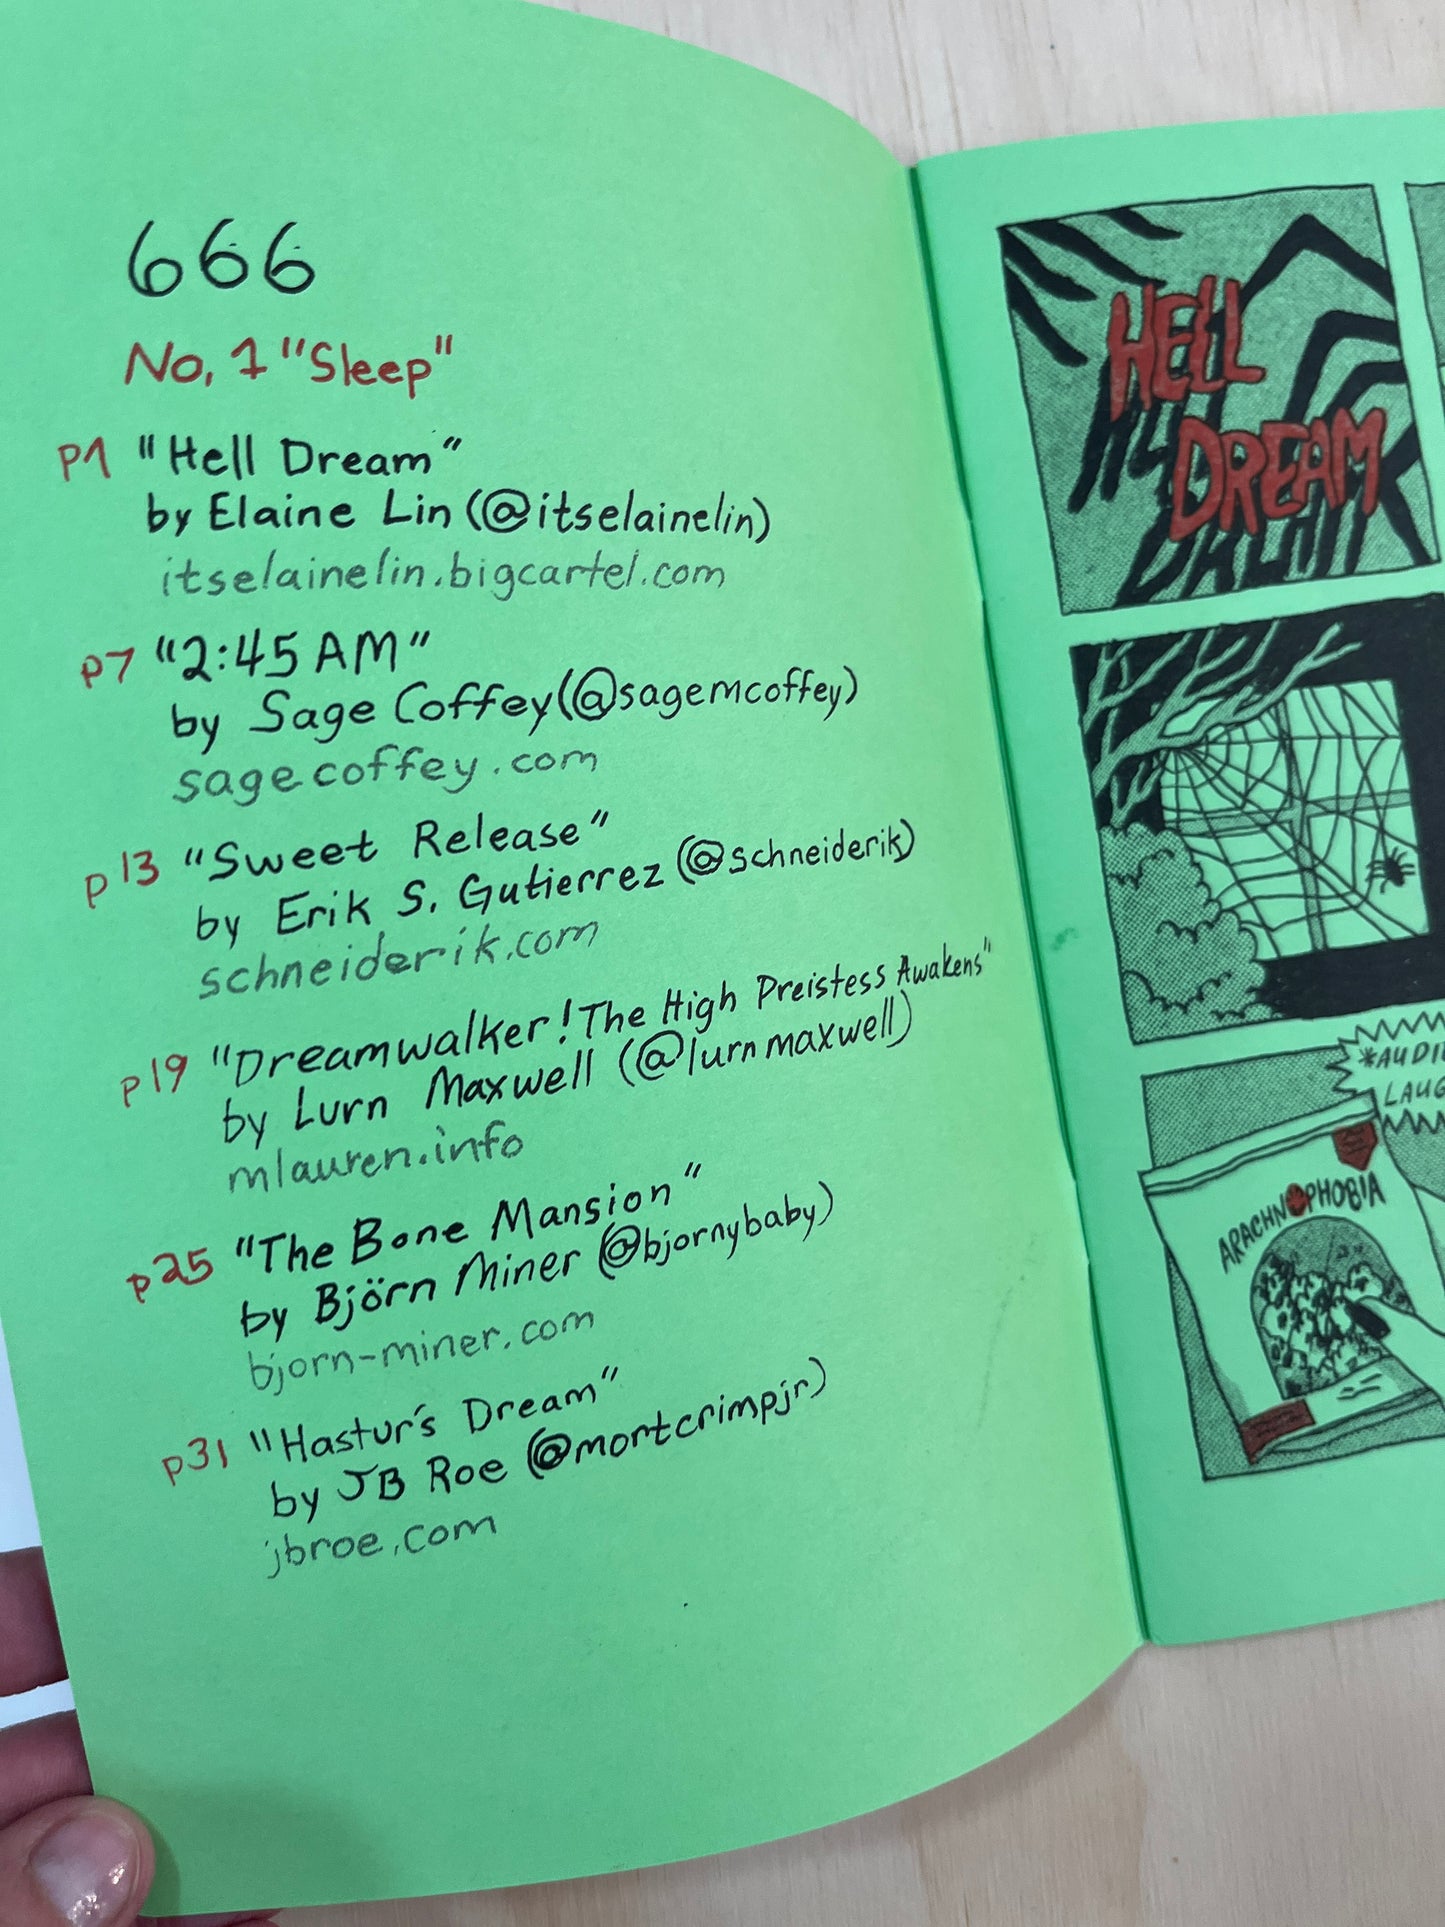 666
No. 1 "Sleep"
p1 "Hell Dream"
by Elaine Lin (@itselainelin)
itselainelin.bigcartel.com
p7 "2:45 AM"
by Sage Coffey (@sagemcoffey)
sagecoffey.com
p13 "Sweet Release"
by Erik S. Gutierrez (@schneiderik)
schneiderik.com
p19 "Dreamwalker! The High Preistess Awakens"
by Lurn Maxwell (@lurnmaxwell)
mlauren.info
p25 "The Bone Mansion"
by Björn Miner (@bjornybaby)
bjorn-miner.com
p31 "Hastur's Dream"
by JB Roe (@mortcrimpjr)
jbroe.com
HELL
DREAM
ARACHNOPHOBIA